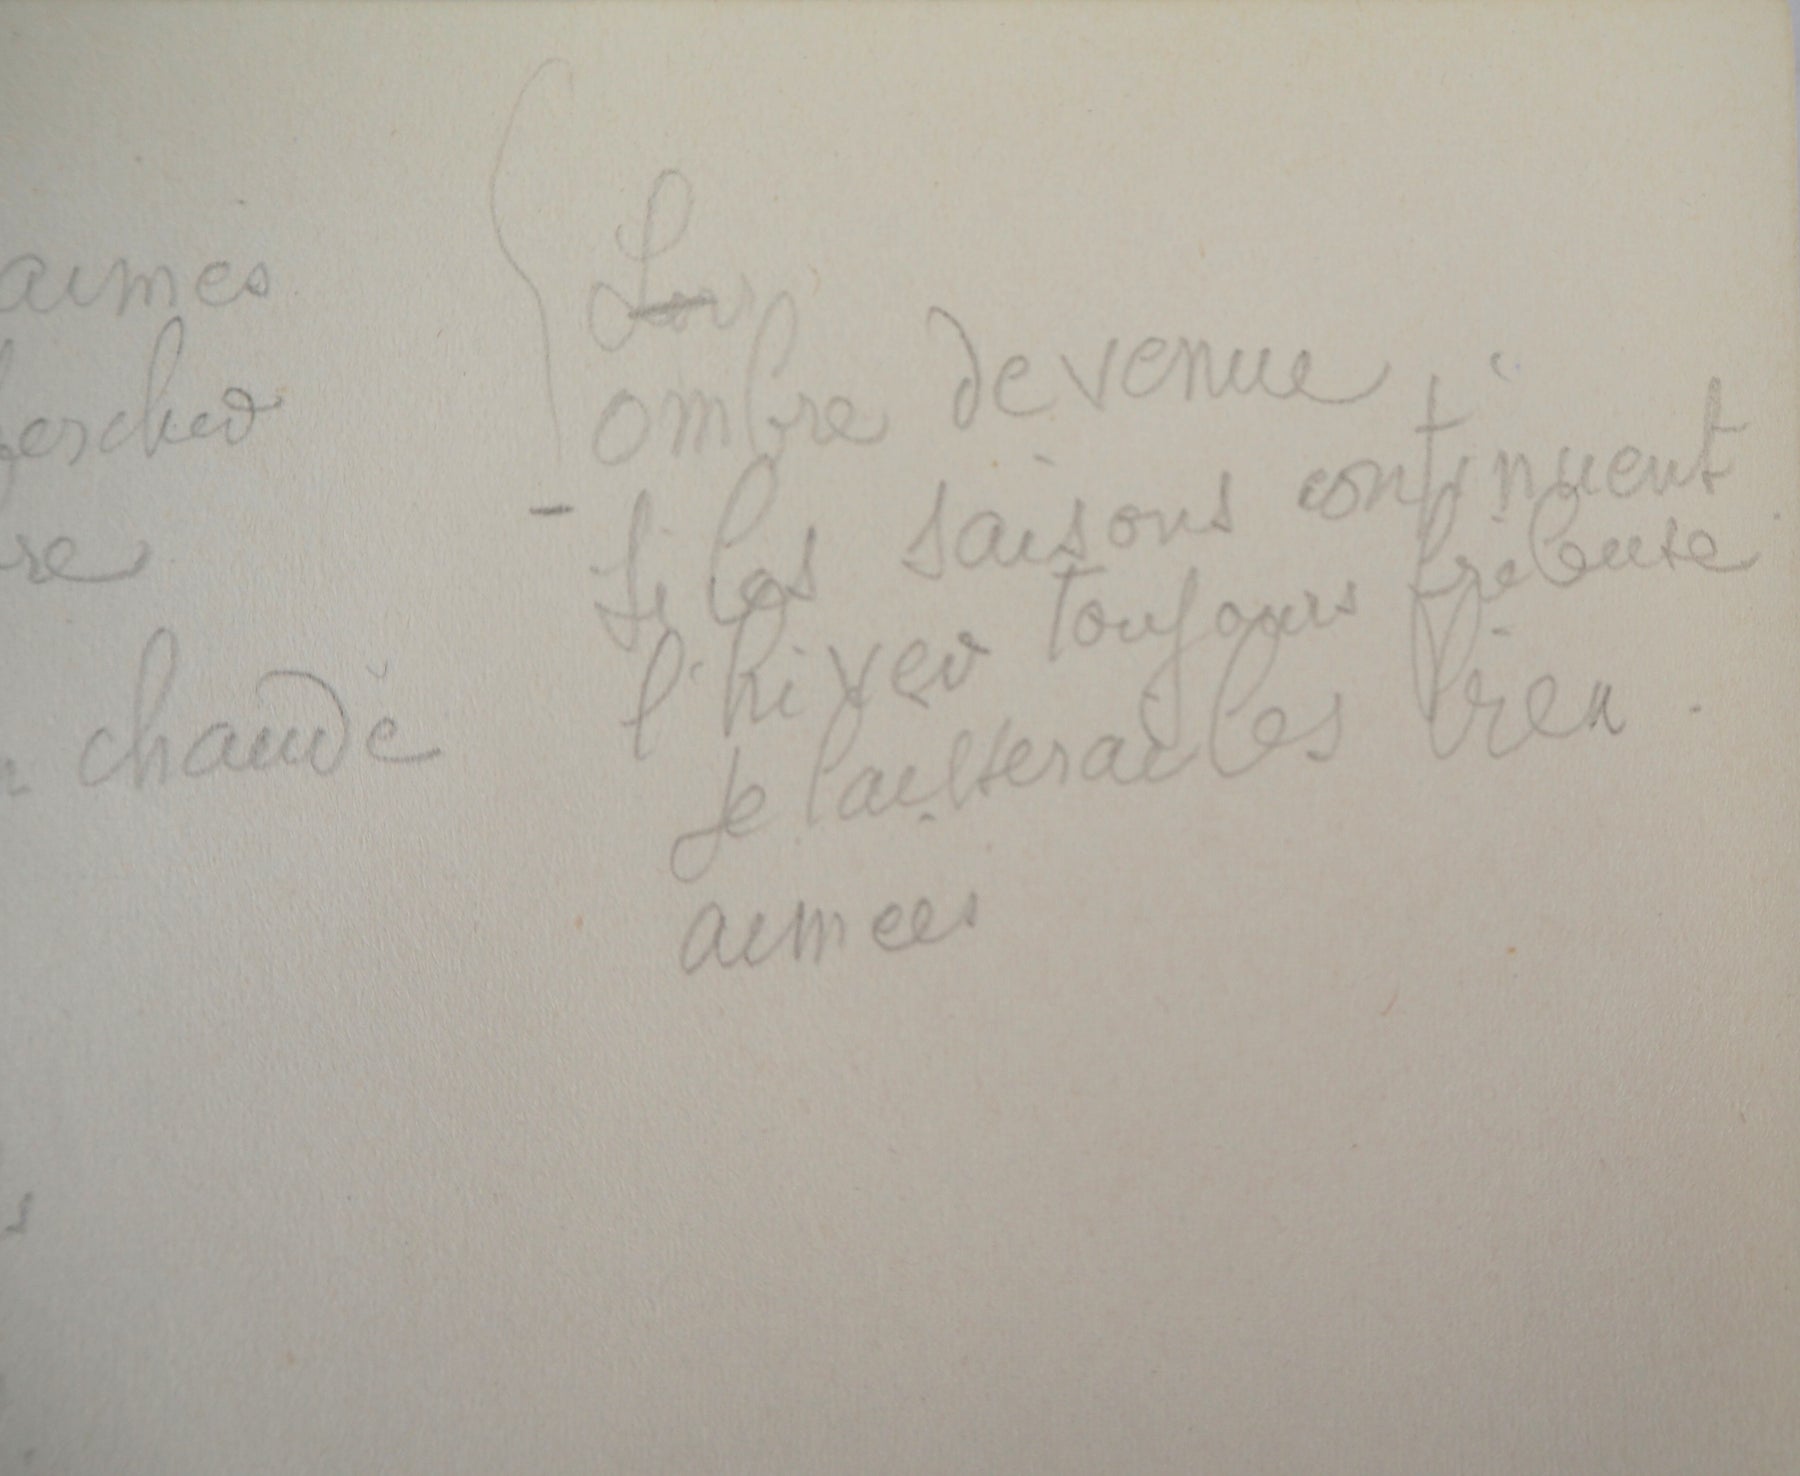 aimés
chercher
re
chaude
ombre devenue
Si les saisons continuent
l'hiver toujours
Je laisserai les bien.
aimées
s